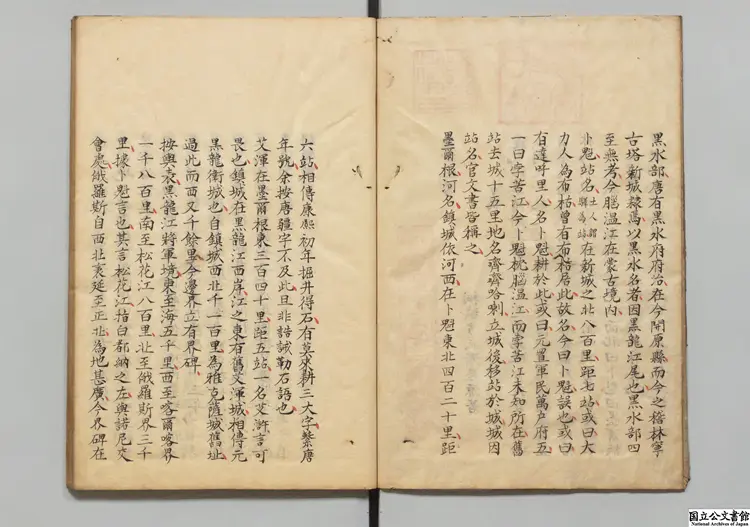 黑水部唐有黑水府府治在今開原縣而今之稽林寧
古塔新城隸焉以黑水名者因黑龍江尾也黑水部四
至無考今腦溫江在蒙古境內
卜魁站名土人辭驛為站在新城之北八百里距七站或曰大
力人為布枯曾有布枯居此故名今曰卜魁誤也或曰
有達呼里人名卜魁耕於此或曰元置軍民萬戶府五
一曰孛苦江今卜魁枕腦溫江而孛苦江未知所在舊
站去城十五里地名齊齊哈喇立城後移站於城城因
站名官文書皆稱之
墨爾根河名鎮城依河西在卜魁東北四百二十里距
六站相傳康熙初年掘井得石有莫來耕三大字繫唐
年號余按唐疆字不及此且非誥誡勒石語也
艾渾在墨爾根東三百四十里距五站一名艾滸言可
畏也鎮城在黑龍江西岸江之東有舊艾渾城相傳元
黑龍衛城也自鎮城西北千一百里為雅克薩城舊址
過此而西又千餘里今邊界立有界碑
按輿袁黑龍江將軍境東至海五千里西至喀爾喀界
一千八百里南至松花江八百里北至俄羅斯界三千
里據卜魁言也其言松花江指白都納之左與諾尼交
會處俄羅斯自西北袤延至正北為地甚廣今界碑在
国立公文書館
National Archives of Japan